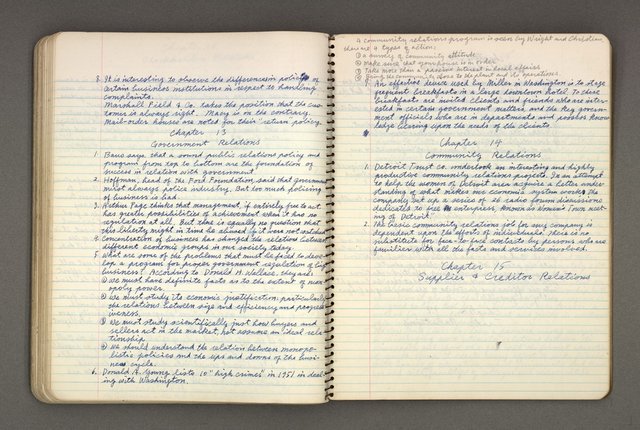 8. It is interesting to observe the differences in policy of
certain business institutions in respect to handling
complaints.
Marshall Field & Co. takes the position that the cus-
tomer is always right. Macy is on the contrary.
Mail-order houses are noted for their "return" policy.
Chapter 13
Government Relations
1. Baus says that a sound public relations policy and
program from top to bottom are the foundation of
success in relation with government.
2. Hoffman, head of the Ford Foundation, said that government
must always police industry. But too much policing
of business is bad.
3. Arthur Page thinks that management, if entirely free to act
has greater possibilities of achievement when it has no
regulation at all. But there is equally no question that
this liberty might in time be abused if it were not watched.
4. Concentration of business has changed the relations between
different economic groups in our society today.
5. What are some of the problems that must be faced to devel-
op a program for proper government regulation of big
business? According to Donald H. Wallace, they are:
① We must have definite facts as to the extent of mon-
opoly power.
② We must study its economic justification, particularly
the relations between size and efficiency and progress-
iveness.
③ We must study scientifically just how buyers and
sellers act in the market, not assume an ideal rela-
tionship.
④ We should understand the relation between monopo-
listic policies and the ups and downs of the busi-
ness cycle.
6. Donald A. Young lists 10 "high crimes" in 1951 in deal-
ing with Washington.
A community relations program as seen by Wright and Christian
there are 4 types of action:
① a survey of community attitude.
② Make sure that your house is in order
③ Take more than a passive interest in local affairs
④ Bring the community close to the plant and its operations.
An effective device used by Miller in Washington is to stage
frequent breakfasts in a large downtown hotel. To these
breakfasts are invited clients and friends who are inter-
ested in certain government matters and the key govern-
ment officials who are in departments and possess know-
ledge bearing upon the needs of the clients.
Chapter 14
Community Relations
1. Detroit Trust Co. undertook an interesting and highly
productive community relations project. In an attempt
to help the women of Detroit area acquire a better under-
standing of what makes our economic system work, the
company put up a series of 26 radio forum discussions
dedicated to free enterprise, known as Women's Town meet-
ing of Detroit.
2. The basic community relations job for any company is
dependent upon the efforts of individuals. There is no
substitute for face-to-face contacts by persons who are
familiar with all the facts and services involved.
Chapter 15
Supplier & Creditor Relations